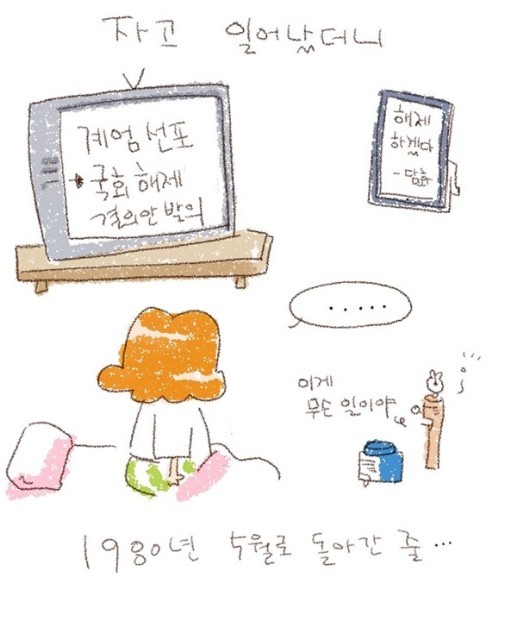 자고 일어났더니
계엄 선포
→ 국회 해제
결의안 발의
해제
하겠다
- 담화
.....
이게
무슨 일이야
1980년 5월로 돌아간 줄…